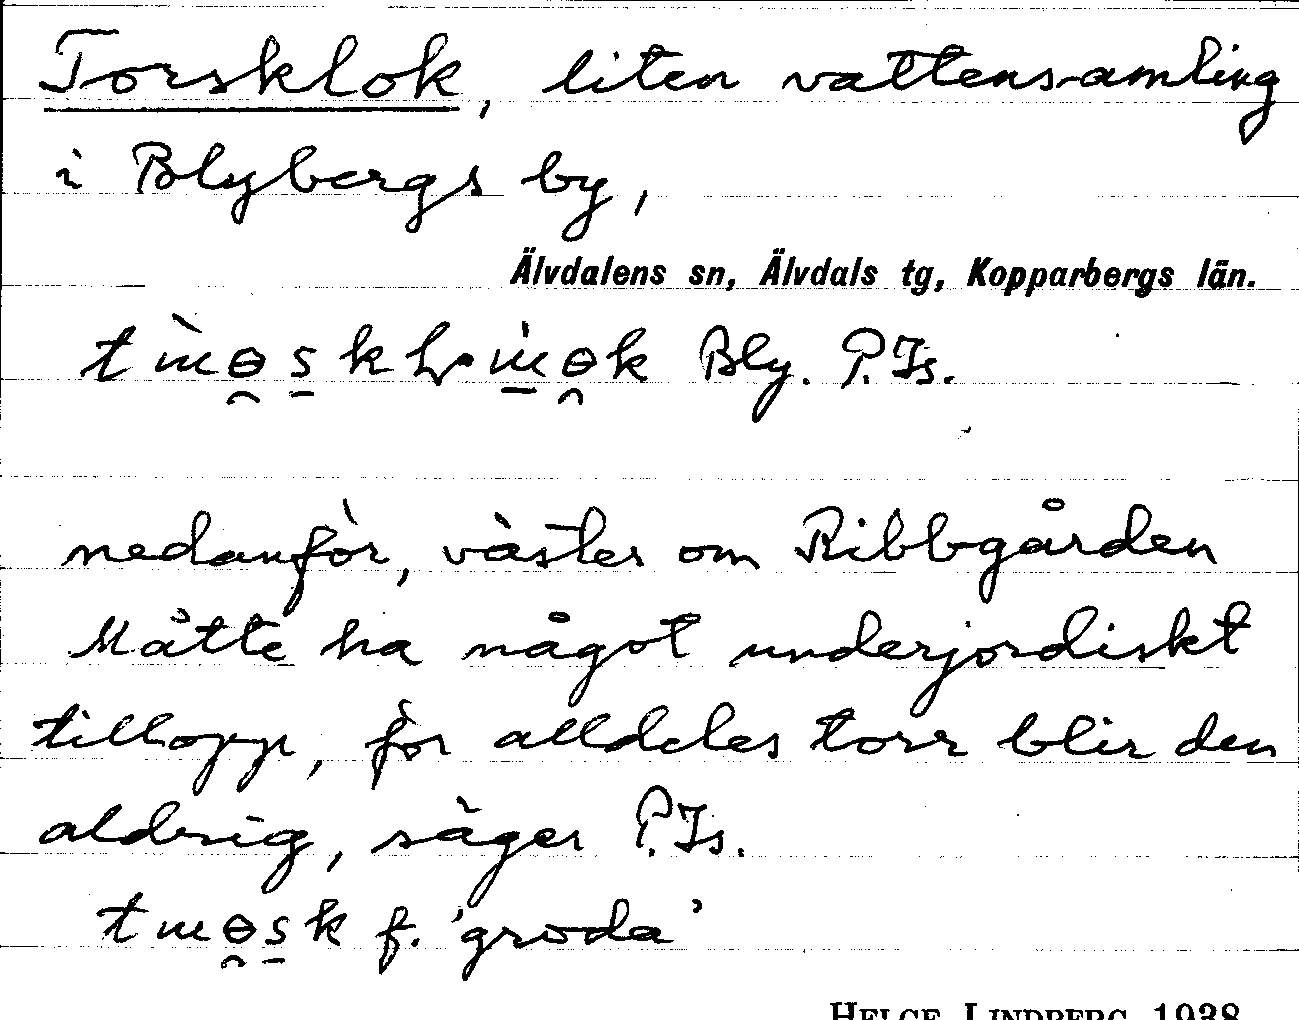 Torsklok, liten vattensamling
i Blybergs by,
Älvdalens sn, Älvdals tg, Kopparbergs län.
Bly. P.Is.
nedanför, väster om Ribbgården
Måtte ha något underjordiskt
tillopp, för alldeles torr blir den
aldrig, säger P.Is.
f. 'groda'
HELGE LINDBERG 1938